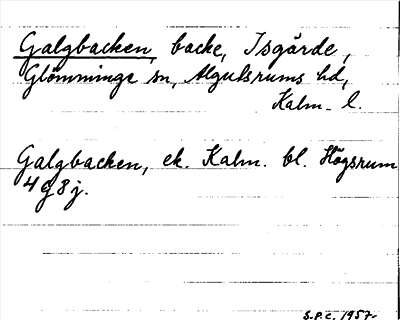 Galgbacken, backe, Isgärde,
Glömminge sn, Algutsrums hd,
Kalm. l.
Galgbacken, ek. Kalm. bl. Högsrum
4g8j.
S.P.C. 1957